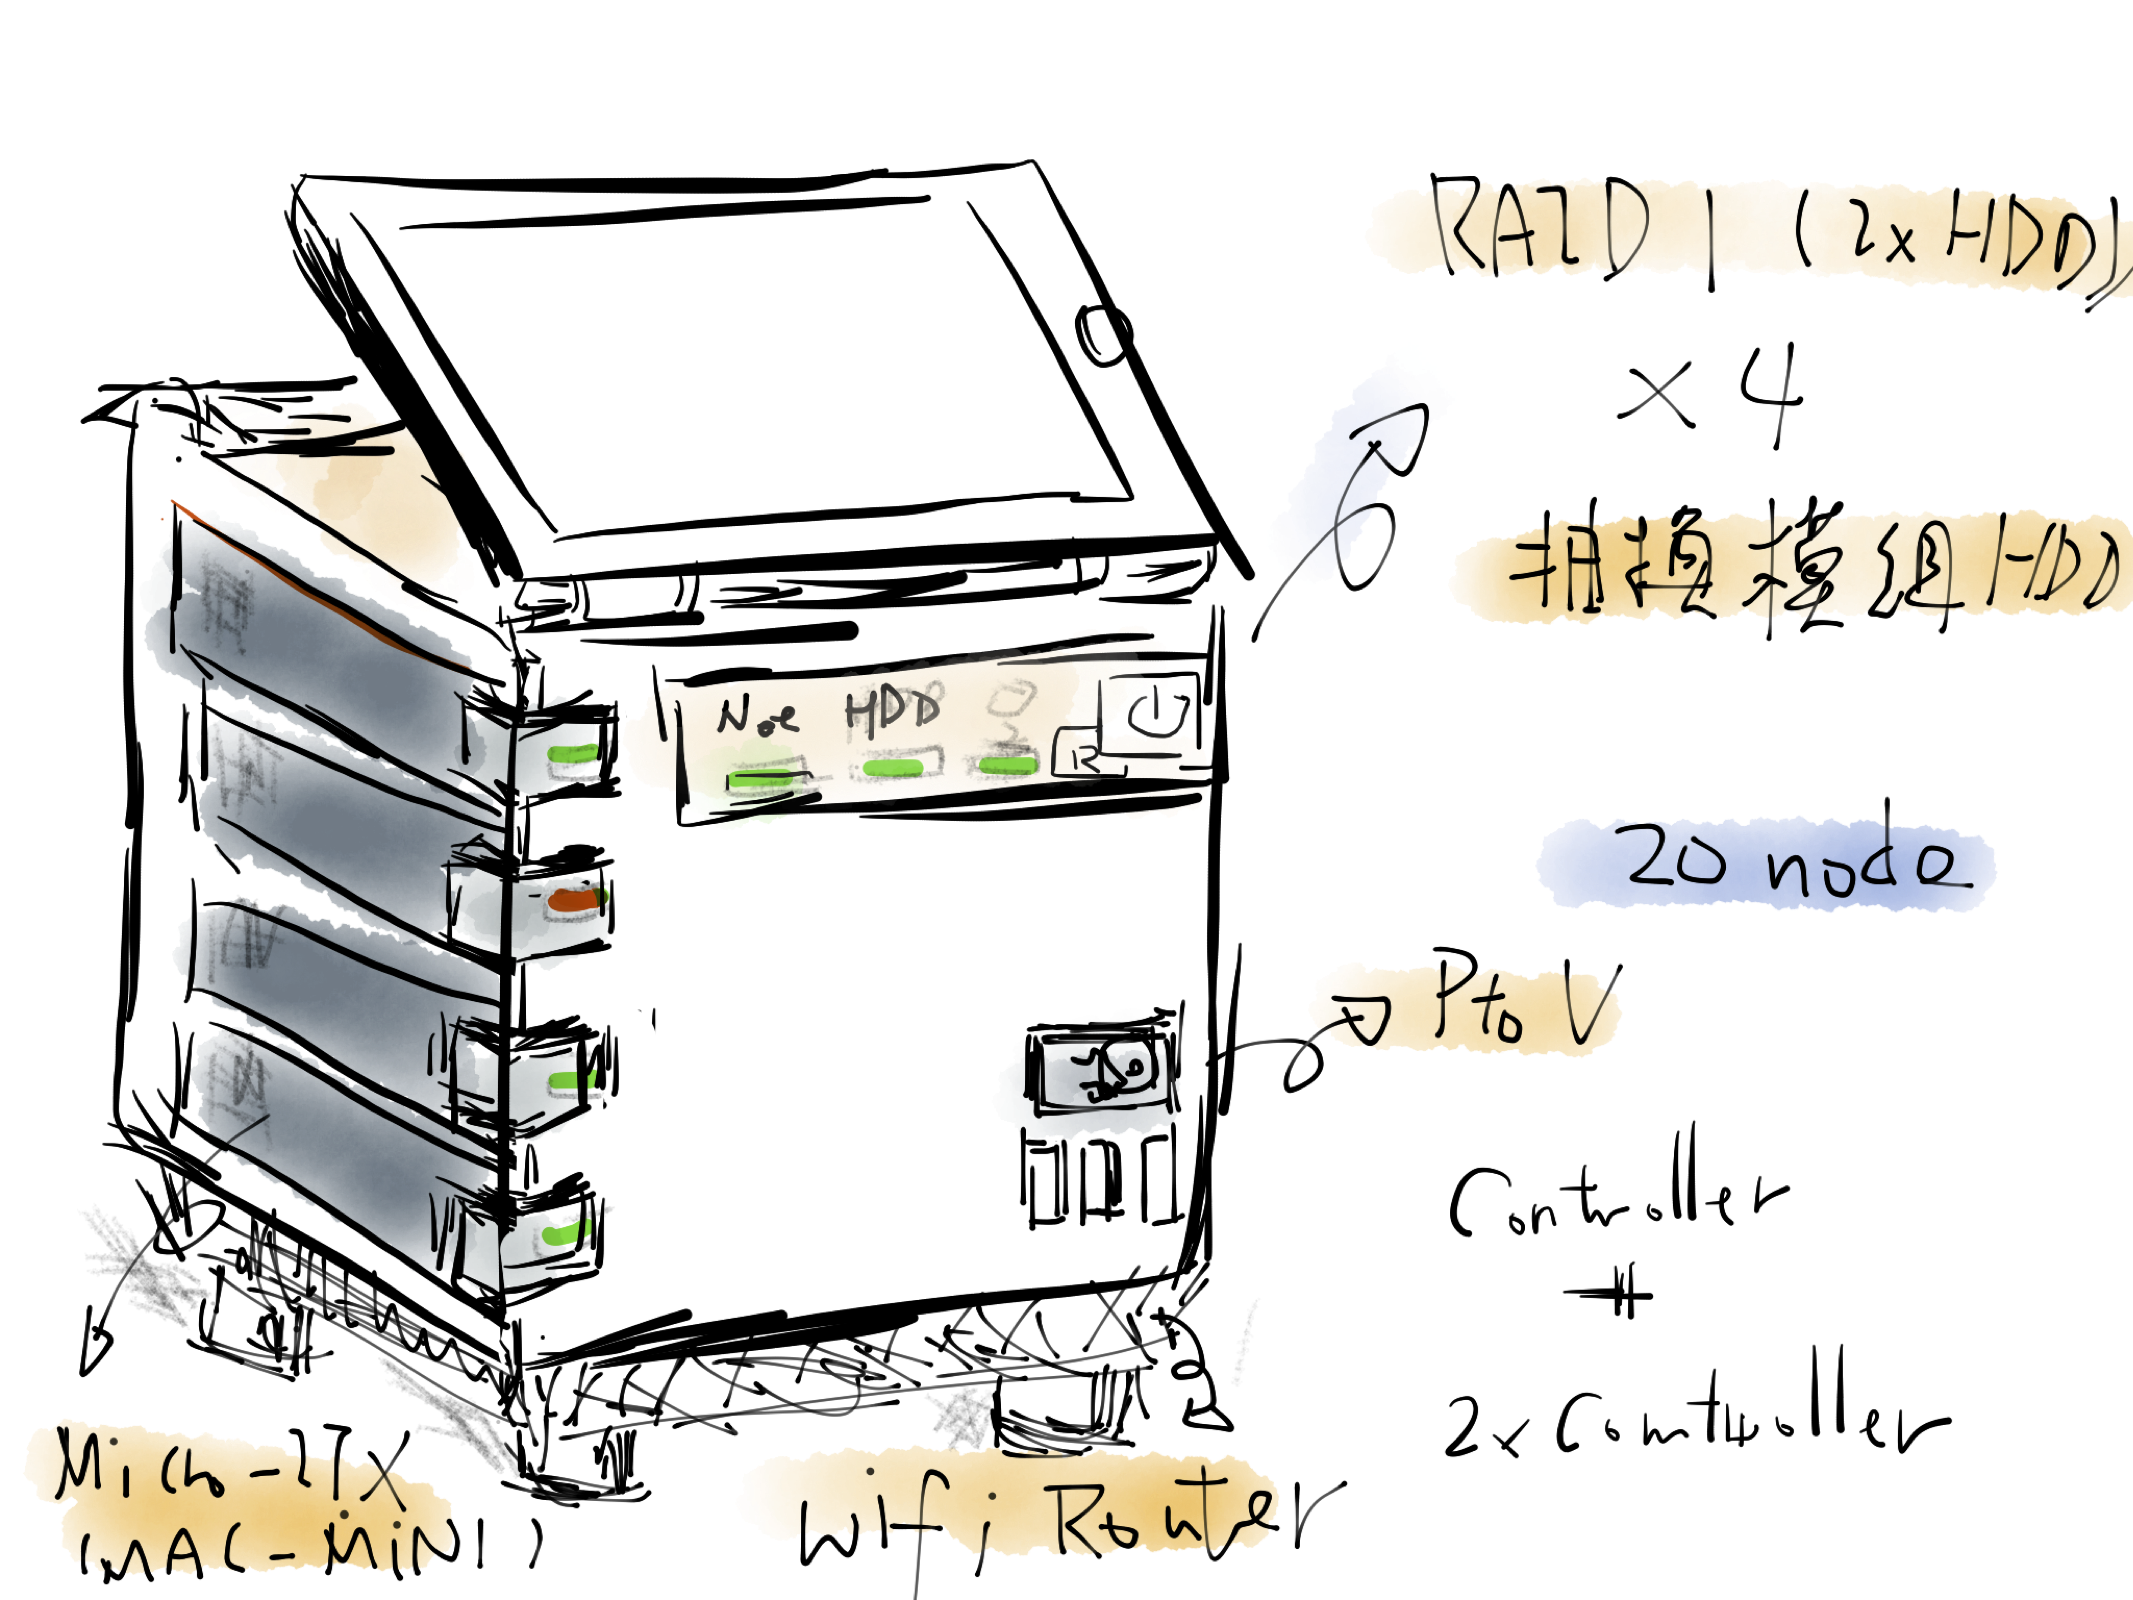 RAID 1 (2x HDD)
x 4
抽換模組 HDD
Noe HDD
R
20 node
P to V
Controller
+
2x Controller
Micro-ITX
(MAC-MiNi)
wifi Router